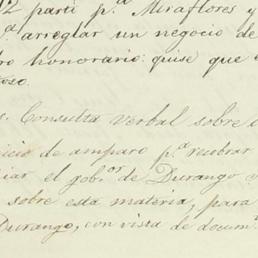 12 parti p.ª Miraflores y
.ª arreglar un negocio de
ro honorario: quise que
oso.
s. Consulta verbal sobre
icio de amparo p.ª recobrar
iar el gob.or de Durango
sobre esta materia, para
Durango, con vista de docum.